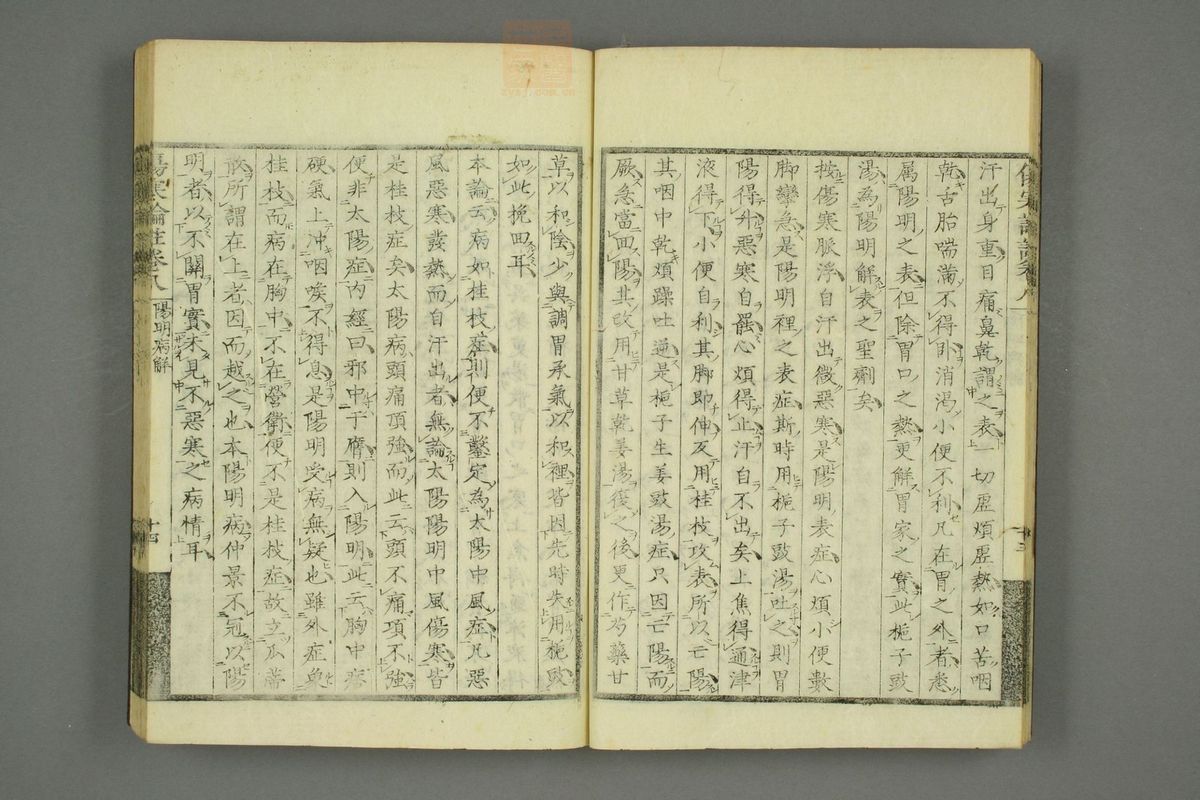 汗出身重目痛鼻乾謂之表一切虚煩虚熱如口苦咽
乾舌胎喘滿不得臥消渇小便不利凡在胃之外者悉
属陽明之表但除胃口之熱更解胃家之實此梔子豉
湯為陽明解表之聖劑矣
按傷寒脈浮自汗出微惡寒是陽明表症心煩小便數
脚攣急是陽明裡之表症斯時用梔子豉湯吐之則胃
陽得升惡寒自罷心煩得止汗自不出矣上焦得通津
液得下小便自利其脚即伸反用桂枝攻表所以亡陽
其咽中乾煩躁吐逆是梔子生姜豉湯症只因亡陽而
厥急當回陽其改用甘草乾姜湯後之後更作芍藥甘
草以和陰少與調胃承氣以和裡皆因先時失用梔豉
如此挽回耳
本論云病如桂枝症則便不鑿定為太陽中風症凡惡
風惡寒發熱而自汗出者無論太陽陽明中風傷寒皆
是桂枝症矣太陽病頭痛項強而此云頭不痛項不強
便非太陽症内經曰邪中于膺則入陽明此云胸中痞
硬氣上冲咽喉不得息是陽明受病無疑也雖外症象
桂枝而病在胸中不在營衛便不是桂枝症故立瓜蒂
散所謂在上者因而越之也本陽明病仲景不冠以陽
明者以不關胃實未見不惡寒之病情耳
傷寒論註卷八
陽明病解
十四